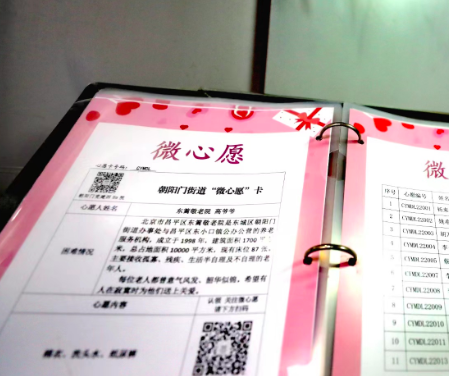 微心愿
心愿卡卡号: CYMDL
朝阳门街道“微心愿”卡
心愿人姓名
东篱敬老院 高爷爷
困难情况
北京市昌平区东篱敬老院是东城区朝阳门
街道办事处与昌平区东小口镇合办公营的养老
服务机构，成立于1998年，建筑面积1700平
米，总占地面积10000平方米，现有床位87元，
主要接收孤寡、残疾、生活半自理及不自理的老
年人。
每位老人都曾意气风发、韶华似锦，希望有
人在寂寞时为他们送上关爱。
心愿内容
认领 关注微心愿
请下方扫码
棉衣、洗头水、纸尿裤
微
序号
心愿编号
1
CYMDL22001
2
CYMDL22002
CYMDL22003
CYMDL22005
CYMDL22006
CYMDL22007
CYMDL22008
CYMDL22009
9
CYMDL22010
10
CYMDL22011
11